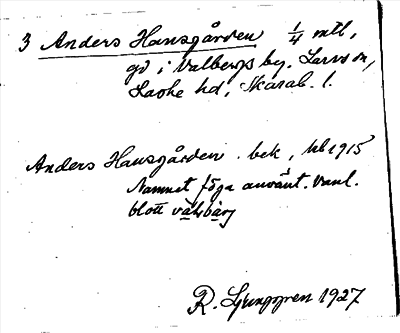 3 Anders Hansgården 1/4 mtl,
gd i Valbergs by. Larvs sn,
Laske hd, Skarab. l.
Anders Hansgården. bek,
Namnet föga använt. Vanl.
blott
R. Ljunggren 1927